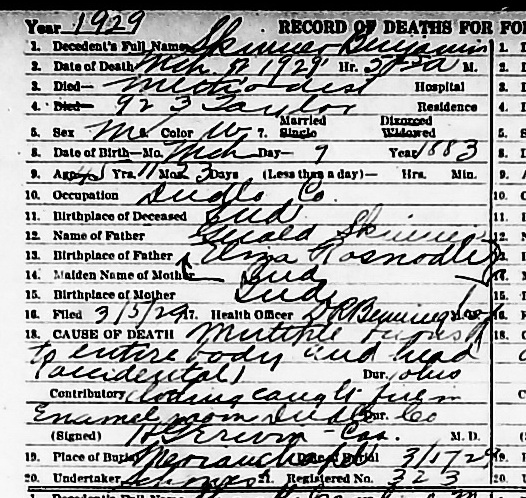 Year 1929 RECORD OF DEATHS FOR FO
1. Decedent's Full Name Skinner Benjamin
2. Date of Death Mch 1929 Hr. A M.
3. Died— Methodist Hospital
4. Died— 923 Taylor Residence
5. Sex M 6. Color W 7. Married Single Divorced Widowed
8. Date of Birth—Mo. Mch Day— 9 Year 1883
9. Age 45 Yrs. 11 Mos. 23 Days (Less than a day)— Hrs. Min.
10. Occupation Dudlo Co.
11. Birthplace of Deceased Ind
12. Name of Father Skinner
13. Birthplace of Father
14. Maiden Name of Mother Ind
15. Birthplace of Mother Ind
16. Filed 3/5/29 17. Health Officer M. D.
18. CAUSE OF DEATH Multiple
to entire body and head
(accidental) Dur. 10 hrs
Contributory clothing caught fire in
Enamel room Dudlo Co Dur.
(Signed) H G Erwin — Cor. M. D.
19. Place of Burial Date of Burial 3/17/29
20. Undertaker 21. Registered No. 323
1. Decedent's Full Name